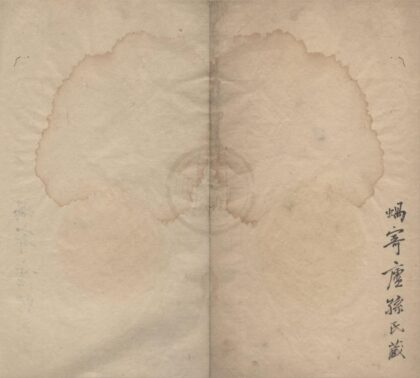 蝸寄廬孫氏藏